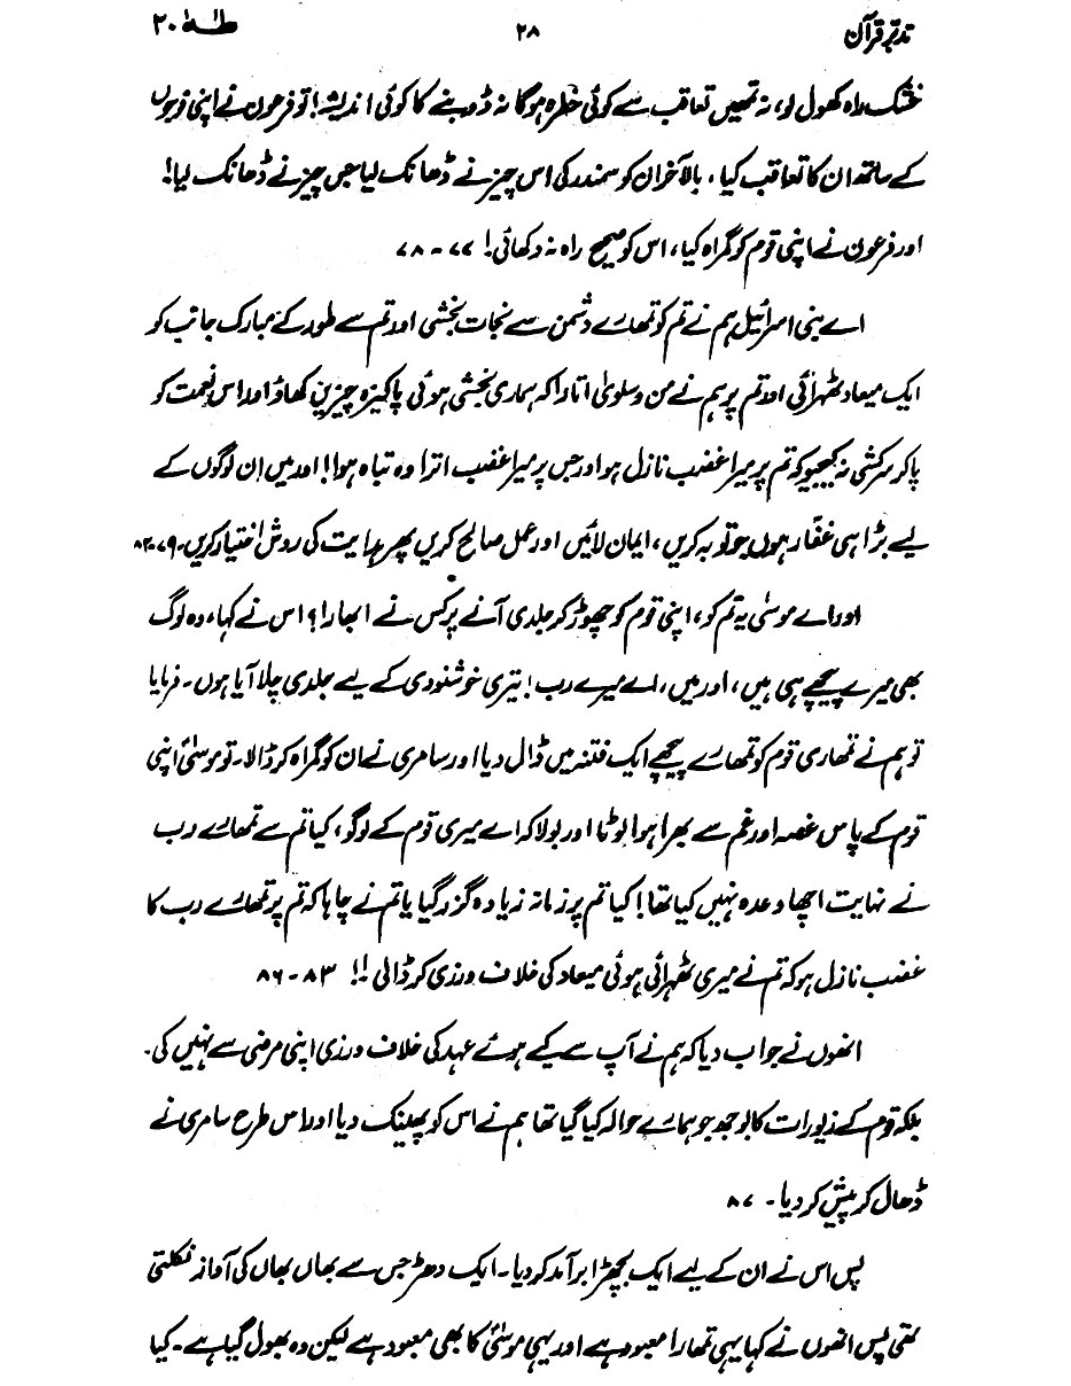 تدبر قرآن ۲۸ طٰهٰ ۲۰
خشک راہ کھول لو، نہ تمھیں تعاقب سے کوئی خطرہ ہوگا نہ ڈوبنے کا کوئی اندیشہ! تو فرعون نے اپنی فوجوں
کے ساتھ ان کا تعاقب کیا، بالآخر ان کو سمندر کی اس چیز نے ڈھانک لیا جس چیز نے ڈھانک لیا!
اور فرعون نے اپنی قوم کو گمراہ کیا، اس کو صحیح راہ نہ دکھائی! ۷۷ - ۷۸
اے بنی اسرائیل ہم نے تم کو تمھارے دشمن سے نجات بخشی اور تم سے طور کے مبارک جانب کو
ایک میعاد ٹھہرائی اور تم پر ہم نے من و سلویٰ اتارا کہ ہماری بخشی ہوئی پاکیزہ چیزیں کھاؤ اور اس نعمت کو
پا کر سرکشی نہ کیجیو کہ تم پر میرا غضب نازل ہو اور جس پر میرا غضب اترا وہ تباہ ہوا! اور میں ان لوگوں کے
لیے بڑا ہی غفّار ہوں جو توبہ کریں، ایمان لائیں اور عمل صالح کریں پھر ہدایت کی روش اختیار کریں۔ ۷۹-۸۲
اور اے موسٰی یہ تم کو، اپنی قوم کو چھوڑ کر جلدی آنے پر کس نے ابھارا؟ اس نے کہا، وہ لوگ
بھی میرے پیچھے ہی ہیں، اور میں، اے میرے رب! تیری خوشنودی کے لیے جلدی چلا آیا ہوں۔ فرمایا
تو ہم نے تمھاری قوم کو تمھارے پیچھے ایک فتنہ میں ڈال دیا اور سامری نے ان کو گمراہ کر ڈالا۔ تو موسٰی اپنی
قوم کے پاس غصہ اور غم سے بھرا ہوا لوٹا اور بولا کہ اے میری قوم کے لوگو، کیا تم سے تمھارے رب
نے نہایت اچھا وعدہ نہیں کیا تھا! کیا تم پر زمانہ زیادہ گزر گیا یا تم نے چاہا کہ تم پر تمھارے رب کا
غضب نازل ہو کہ تم نے میری ٹھہرائی ہوئی میعاد کی خلاف ورزی کر ڈالی !! ۸۳ - ۸۶
انھوں نے جواب دیا کہ ہم نے آپ سے کیے ہوئے عہد کی خلاف ورزی اپنی مرضی سے نہیں کی۔
بلکہ قوم کے زیورات کا بوجھ جو ہمارے حوالہ کیا گیا تھا ہم نے اس کو پھینک دیا اور اس طرح سامری نے
ڈھال کر پیش کر دیا۔ ۸۷
پس اس نے ان کے لیے ایک بچھڑا برآمد کر دیا۔ ایک دھڑ جس سے بھاں بھاں کی آواز نکلتی
تھی پس انھوں نے کہا یہی تمھارا معبود ہے اور یہی موسٰی کا بھی معبود ہے لیکن وہ بھول گیا ہے۔ کیا